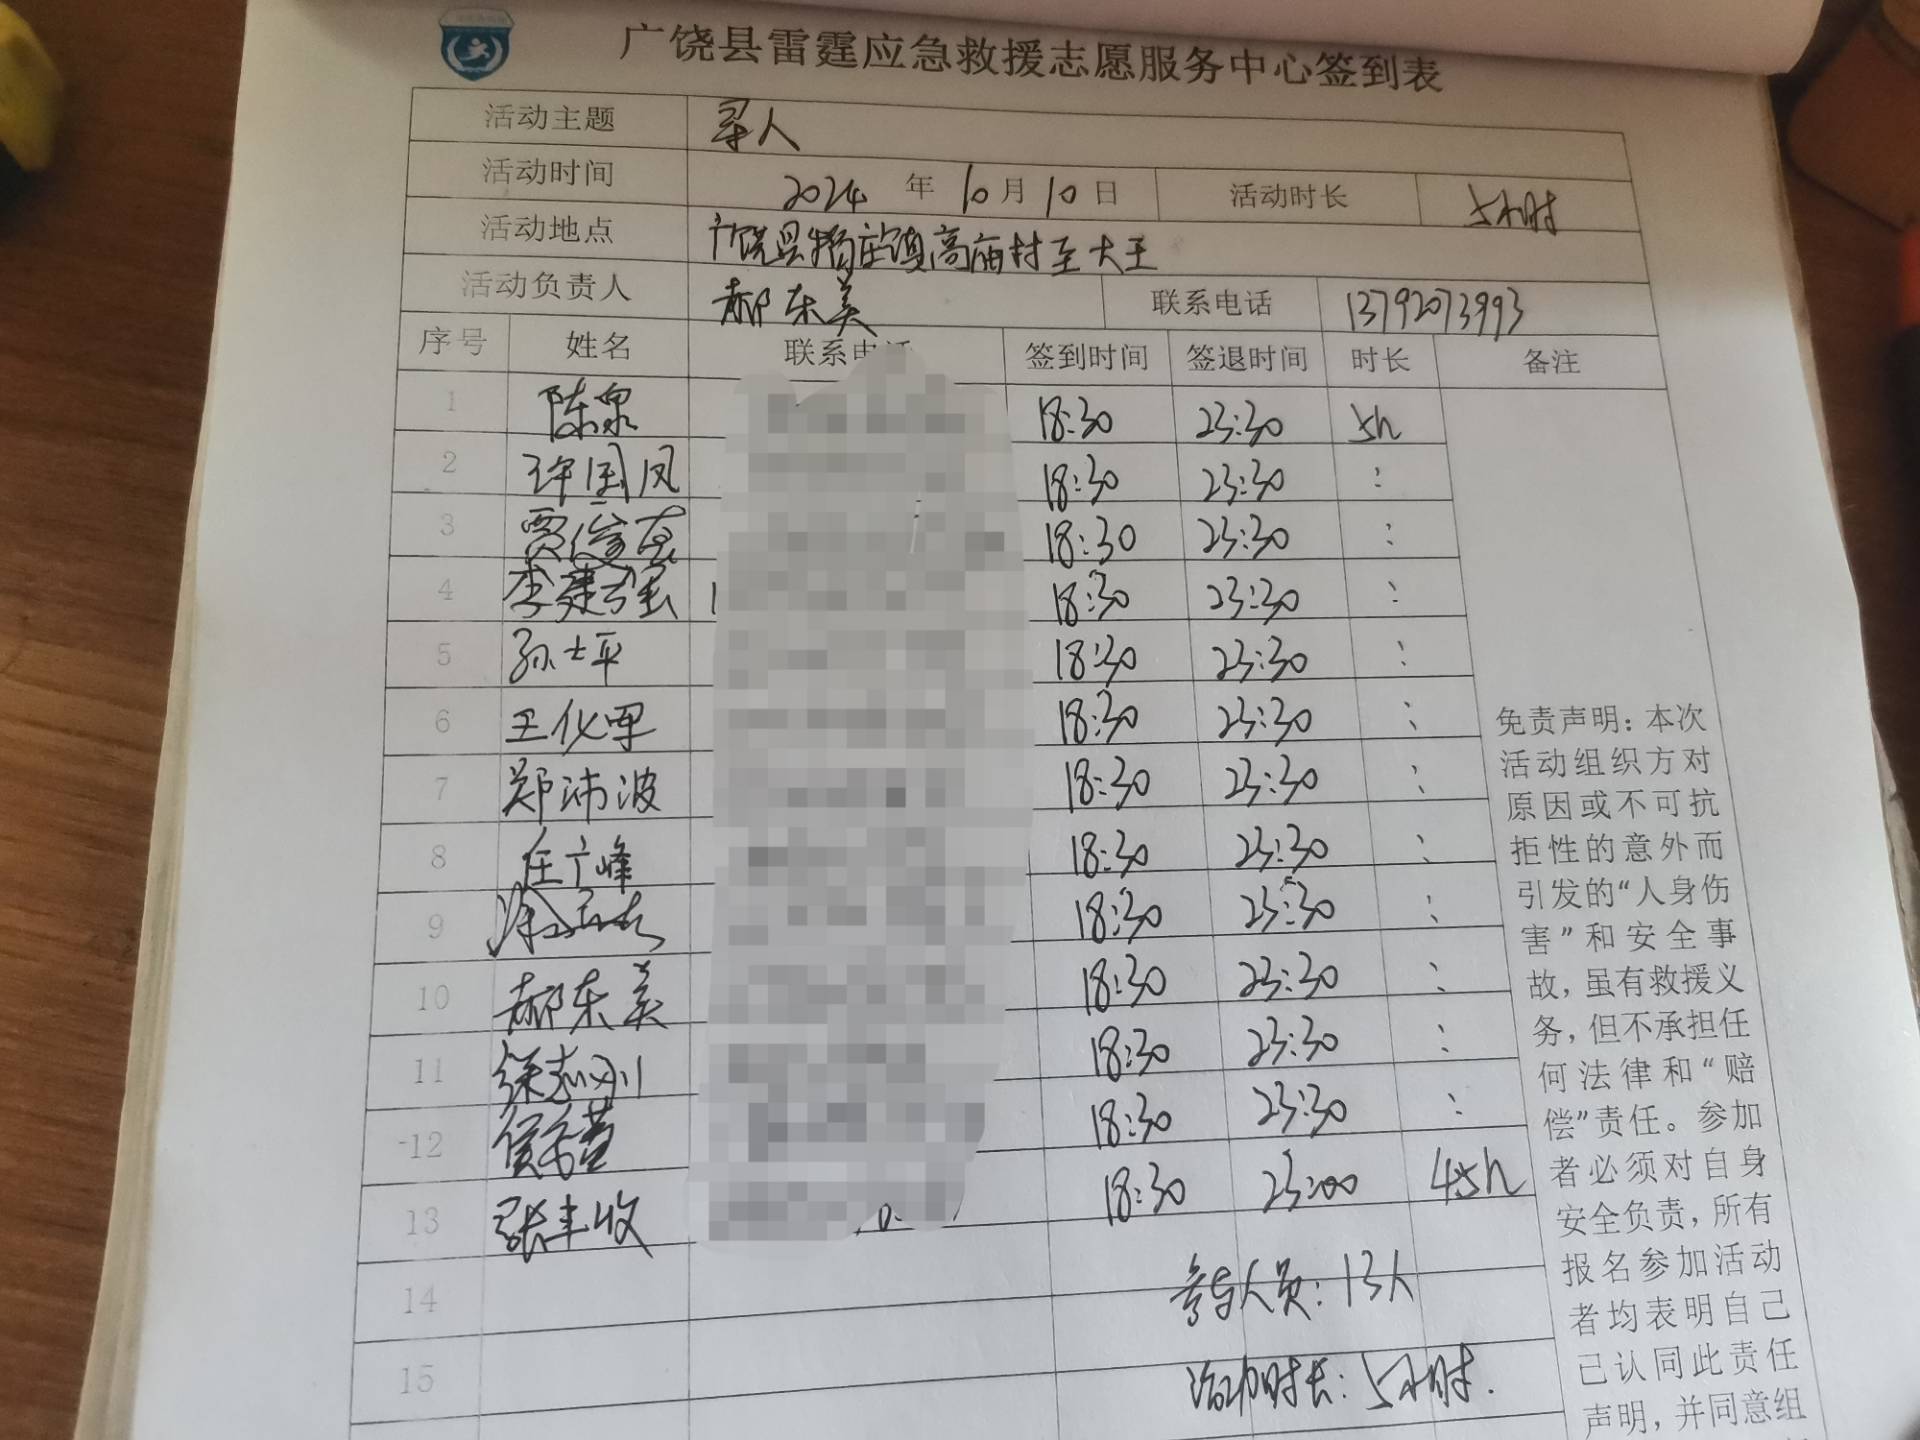 广饶县雷霆应急救援志愿服务中心签到表
活动主题 寻人
活动时间 2024 年 10 月 10 日 活动时长 5小时
活动地点 广饶县稻庄镇高庙村至大王
活动负责人 郝东美 联系电话 13792073993
序号 姓名 联系电话 签到时间 签退时间 时长 备注
1 陈泉 18:30 23:30 5h
2 许国凤 18:30 23:30 :
3 贾俊 18:30 23:30 :
4 李建强 18:30 23:30 :
5 孙士平 18:30 23:30 :
6 王化军 18:30 23:30 :
7 郑沛波 18:30 23:30 :
8 任广峰 18:30 23:30 :
9 18:30 23:30 :
10 郝东美 18:30 23:30 :
11 徐志刚 18:30 23:30 :
12 18:30 23:30 :
13 张丰收 18:30 23:00 4.5h
14 参与人员：13人
15 活动时长：5小时.
免责声明：本次
活动组织方对
原因或不可抗
拒性的意外而
引发的“人身伤
害”和安全事
故，虽有救援义
务，但不承担任
何法律和“赔
偿”责任。参加
者必须对自身
安全负责，所有
报名参加活动
者均表明自己
已认同此责任
声明，并同意组